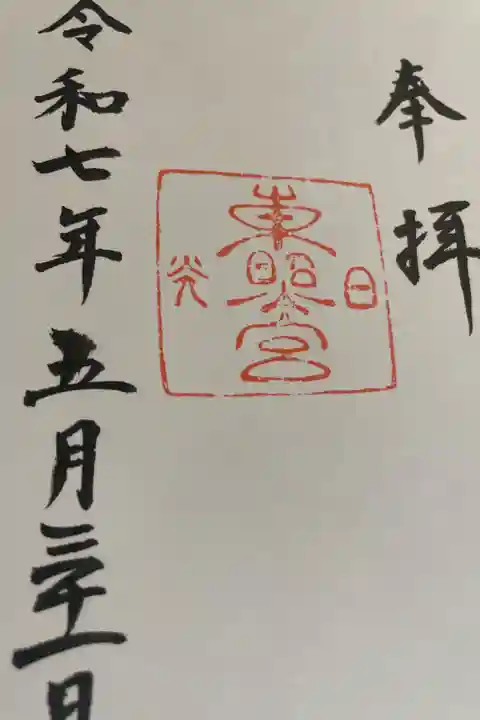 奉拝
日光
東照宮
令和七年五月三十一日